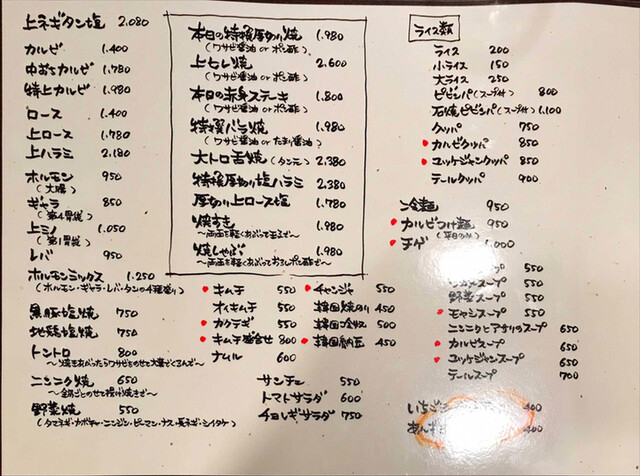 上ネギタン塩 2,080
カルビ 1,400
中おちカルビ 1,780
特上カルビ 1,980
ロース 1,400
上ロース 1,780
上ハラミ 2,180
ホルモン 950
(大腸)
ギャラ 850
(第4胃袋)
上ミノ 1,050
(第1胃袋)
レバ 950
ホルモンミックス 1,250
(ホルモン・ギャラ・レバ・タンの4種盛り)
黒豚塩焼 750
地鶏塩焼 750
トントロ 800
ニンニク焼 650
野菜焼 550
(タマネギ・カボチャ・ニンジン・ピーマン・ナス・長ネギ・シイタケ)
本日の特撰厚切り焼 1,980
(ワサビ醤油 or ポン酢)
上ヒレ焼 2,600
(ワサビ醤油 or ポン酢)
本日の赤身ステーキ 1,800
(ワサビ醤油 or ポン酢)
特撰バラ焼 1,980
(ワサビ醤油 or たまり醤油)
大トロ舌焼(タン元) 2,380
特撰厚切り塩ハラミ 2,380
厚切り上ロース塩 1,780
焼すき 1,980
〜両面を軽くあぶって玉子で〜
焼しゃぶ 1,980
〜両面を軽くあぶっておろしポン酢で〜
キムチ 550
オイキムチ 550
カクテギ 550
キムチ盛合せ 800
ナムル 600
チャンジャ 550
韓国焼のり 450
韓国冷奴 500
韓国納豆 450
サンチュ 550
トマトサラダ 600
チョレギサラダ 750
ライス類
ライス 200
小ライス 150
大ライス 250
ビビンバ(スープ付) 800
石焼ビビンバ(スープ付) 1,100
クッパ 750
カルビクッパ 850
ユッケジャンクッパ 850
テールクッパ 900
冷麺 950
カルビつけ麺 950
(平日のみ)
チゲ 1,000
プ 550
スープ 550
野菜スープ 550
モヤシスープ 550
ニンニクとアサリのスープ 650
カルビスープ 650
ユッケジャンスープ 650
テールスープ 700
いちご 400
あんず 400